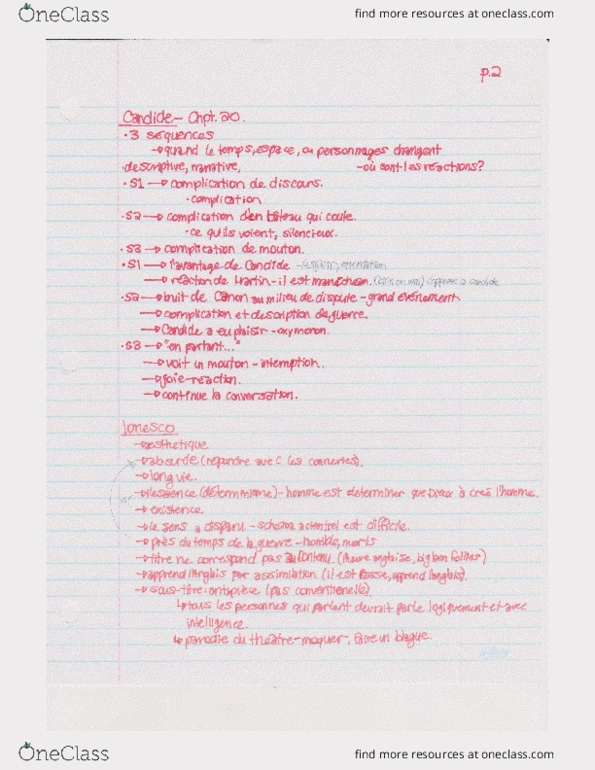 OneClass
find more resources at oneclass.com
p.2
Candide - Chpt. 20.
• 3 séquences
→ quand le temps, espace, ou personnages changent
• descriptive, narrative, - où sont les réactions?
• S1 → complication de discours.
• complication
• S2 → complication d'en bateau qui coule.
• ce qu'ils voient, silencieux.
• S3 → complication de mouton.
• S1 → l'avantage de Candide
→ réaction de Martin - il est manichéan.
• S2 → bruit de Canon au milieu de dispute - grand evénement
→ complication et description de guerre.
→ Candide a eu plaisir - oxymoron.
• S3 → "en partant..."
→ voit un mouton - interruption.
→ joie - réaction.
→ continue la conversation.
Ionesco
→ esthétique
→ absurde (répondre avec C les connertes).
→ long vie.
→ l'essence (déterminisme) - homme est determiner que Dieux à creé l'homme.
→ existence.
→ le sens a disparu. - schéma actentiel est difficile.
→ près du temps de la guerre - horrible, morts
→ titre ne correspond pas au contenu. (l'heure anglaise, big ben)
→ apprend l'Anglais par assimilation (il est Russe, apprend l'anglais).
→ sous-titre: antipièce (pas conventionelle)
↳ tous les personnes qui parlent devrait parle logiquement et avec
intelligence.
↳ parodie du théatre - moquer, faire un blague.
OneClass
find more resources at oneclass.com